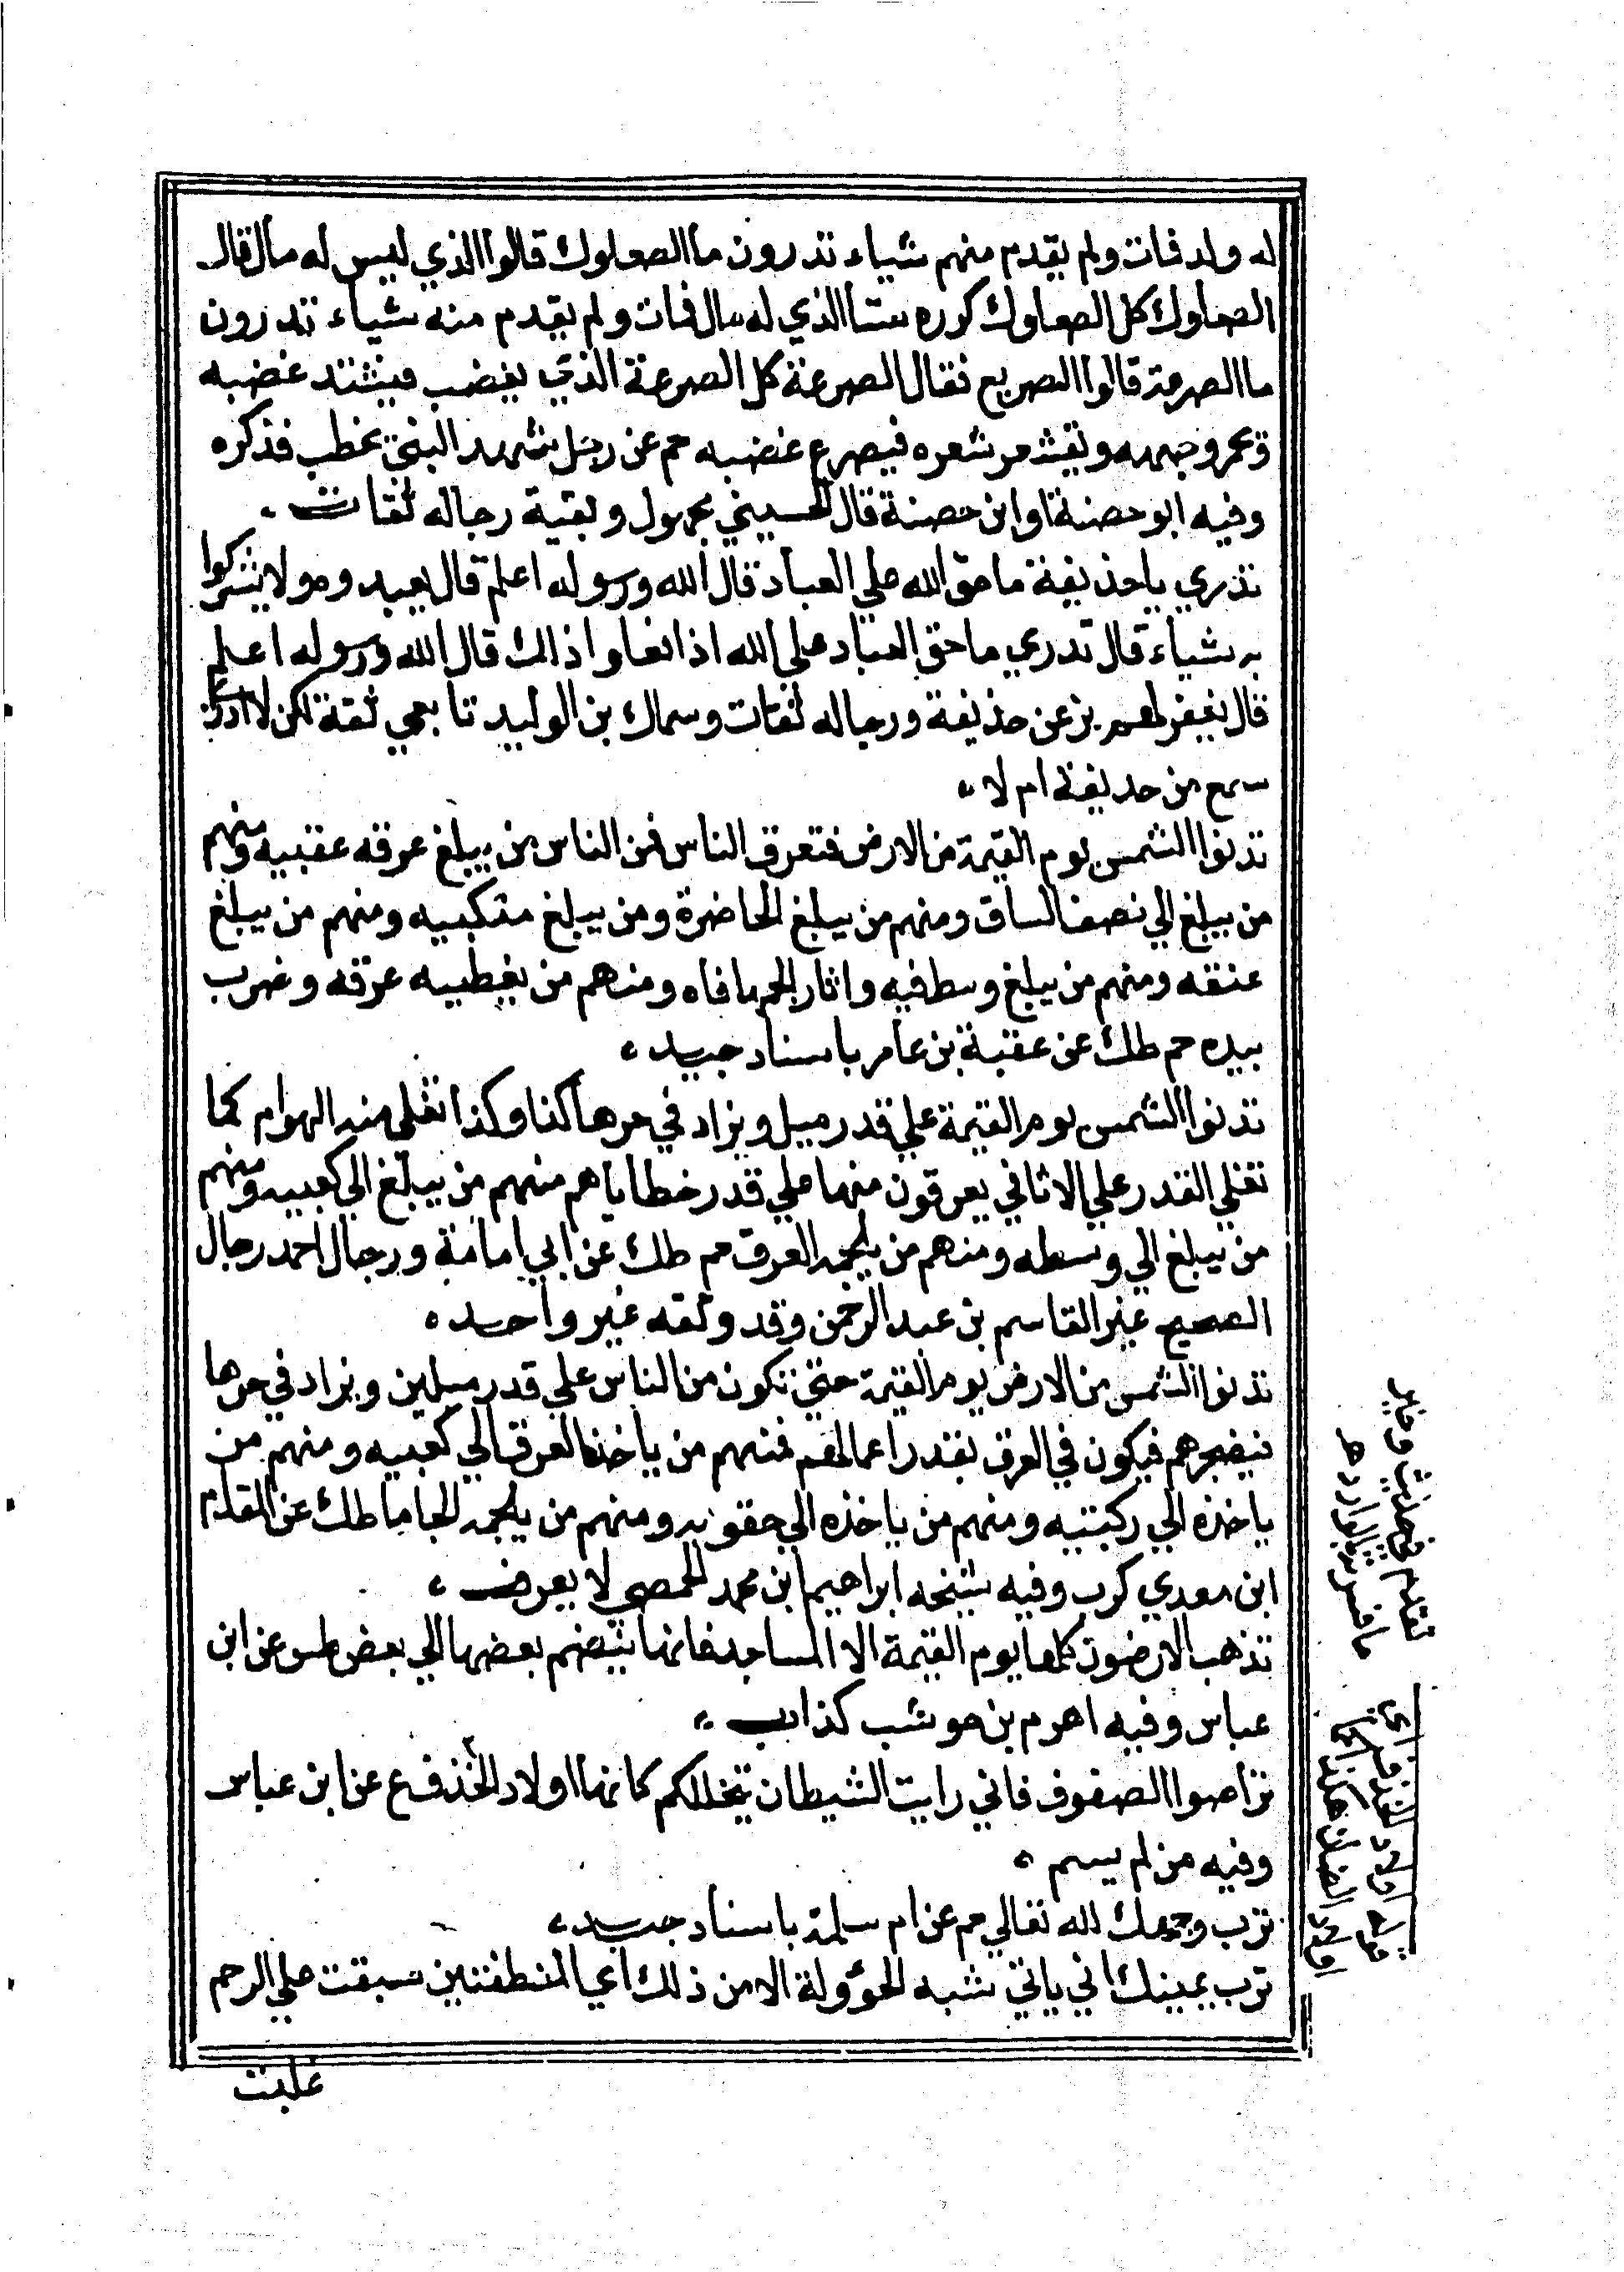 له ولد فات ولم يقدم منهم شياء تدرون ما الصعلوك قالوا الذي ليس له مال قال
الصعلوك كل الصعلوك كوره ستا الذي له مال فات ولم يقدم منه شياء تدرون
ما الصرعة قالوا الصريع فقال الصرعة كل الصرعة الذي يغضب فيشتد غضبه
ويحمر وجهه ويقشعر شعره فيصرع غضبه حم عن رجل شهد النبي يخطب فذكره
وفيه ابو حصنة او ابن حصنة قال الحسيني مجهول وبقية رجاله ثقات
تدري يا حذيفة ما حق الله علي العباد قال الله ورسوله اعلم قال يعبده ولا يشركوا
به شياء قال تدري ما حق العباد علي الله اذا فعلوا ذالك قال الله ورسوله اعلم
قال يغفر لهم بز عن حذيفة ورجاله ثقات وسماك بن الوليد تابعي ثقة لكن لا ادري
سمع من حذيفة ام لا
تدنوا الشمس يوم القيمة من الارض فتعرق الناس فمن الناس من يبلغ عرقه عقبيه ومنهم
من يبلغ الي نصف الساق ومنهم من يبلغ الخاضرة ومن يبلغ متكبيه ومنهم من يبلغ
عنقه ومنهم من يبلغ وسط فيه واثار الجمها فاه ومنهم من يغطيه عرقه وضرب
بيده حم طك عن عقبة بن عامر باسناد جيد
تدنوا الشمس يوم القيمة علي قدر ميل ويزاد في حرها كذا وكذا تغلي منه الهوام كما
تغلي القدر علي الاثافي يعرقون منها علي قدر خطاياهم منهم من يبلغ الي كعبيه ومنهم
من يبلغ الي وسطه ومنهم من يلجمه العرق حم طك عن ابي امامة ورجال احمد رجال
الصحيح غير القاسم بن عبد الرحمن وقد وثقه غير واحد
تدنوا الشمس من الارض يوم القيمة حتي تكون من الناس علي قدر ميلين ويزاد في حرها
فيضجرهم فيكون في العرق بقدر اعمالهم فمنهم من ياخذه العرق الي كعبيه ومنهم من
ياخذه الي ركبتيه ومنهم من ياخذه الي حقويه ومنهم من يلجمه الجاما طك عن المقدام
ابن معدي كرب وفيه شيخه ابراهيم ابن محمد الحمصي لا يعرف
تذهب الارضون كلها يوم القيمة الا المساجد فانها ينضم بعضها الي بعض طس عن ابن
عباس وفيه اصرم بن حوشب كذاب
تراصوا الصفوف فاني رايت الشيطان يتخللكم كانها اولاد الخذف ع عن ابن عباس
وفيه من لم يسم
ترب وجهك لله تعالي حم عن ام سلمة باسناد جيد
ترب يمينك اني ياتي شبه الخؤولة الا من ذلك اي المنطفتين سبقت علي الرحم
غلبت